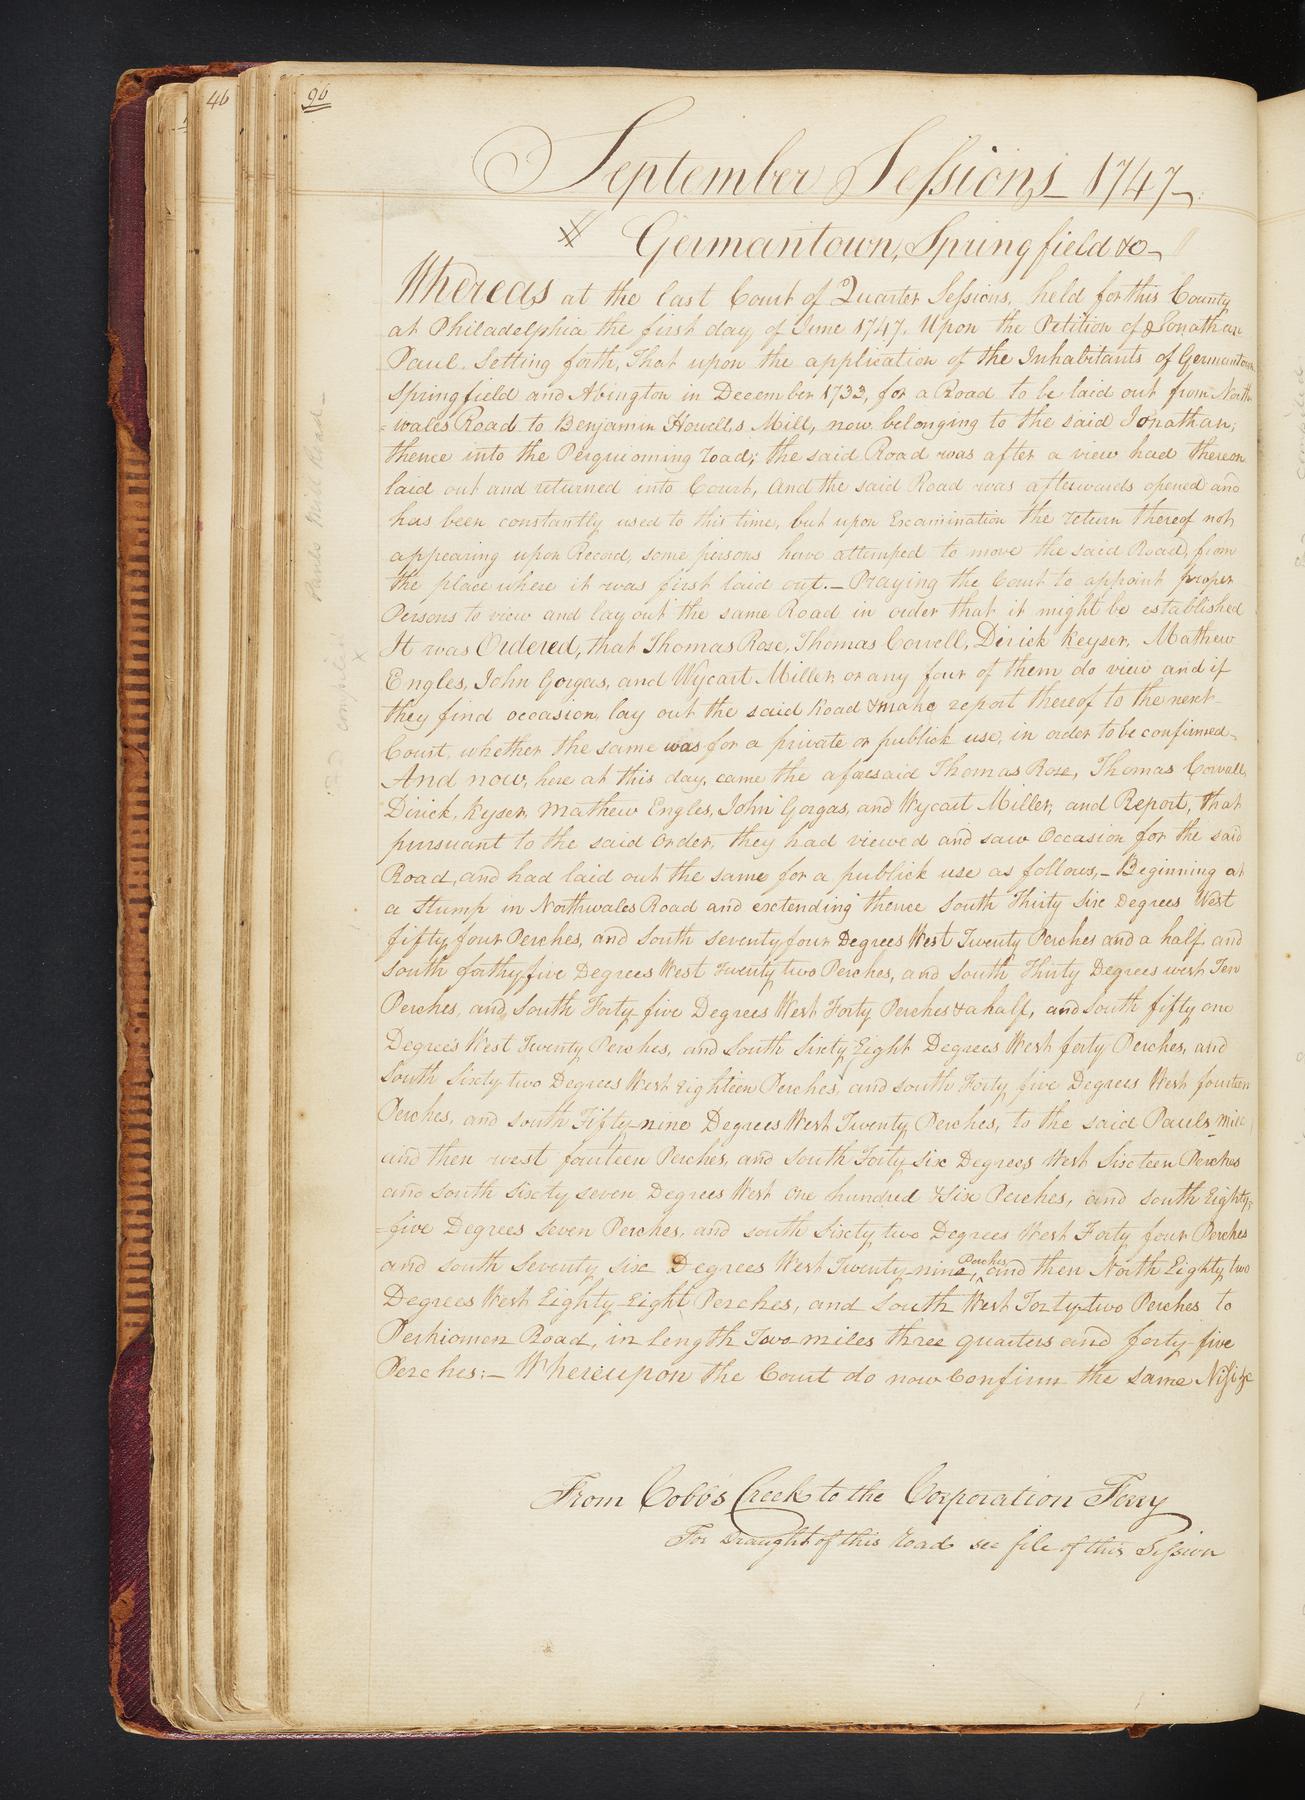 46
96
September Sessions 1747
Germantown, Springfield &c
Whereas at the last Court of Quarter Sessions, held for this County
at Philadelphia the first day of June 1747. Upon the Petition of Jonathan
Paul. Setting forth, That upon the application of the Inhabitants of Germantown
Springfield and Abington in December 1733, for a Road to be laid out from North
=wales Road to Benjamin Howells Mill, now belonging to the said Jonathan,
thence into the Perquioming road; the said Road was after a view had thereon
laid out and returned into Court, And the said Road was afterwards opened and
has been constantly used to this time, but upon Examination the return thereof not
appearing upon Record, some persons have attemped to move the said Road, from
the place where it was first laid out._ Praying the Court to appoint proper
Persons to view and lay out the same Road in order that it might be established
It was Ordered, that Thomas Rose, Thomas Corvell, Dirick Keyser, Mathew
Engles, John Gorgas, and Wycart Miller or any four of them do view and if
they find occasion, lay out the said Road & make report thereof to the next
Court, whether the same was for a private or publick use, in order to be confirmed_
And now, here at this day, came the aforesaid Thomas Rose, Thomas Corvall,
Dirick, Keyser, Mathew Engles, John Gorgas, and Wycart Miller, and Report, that
pursuant to the said Order, they had viewed and saw Occasion for the said
Road, and had laid out the same for a publick use as follows,_ Beginning at
a Stump in Northwales Road and extending thence South Thirty Six Degrees West
fifty four Perches, and South seventy four Degrees West Twenty Perches and a half, and
South forthy five Degrees West twenty two Perches, and South Thirty Degrees west Ten
Perches, and, South Forty-five Degrees West Forty Perches & a half, and South fifty one
Degrees West Twenty Perches, and South Sixty Eight Degrees West forty Perches, and
South Sixty two Degrees West Eighteen Perches, and South Forty five Degrees West fourteen
Perches, and South Fifty-nine Degrees West Twenty Perches, to the said Pauls Mill
and then west fourteen Perches, and South Forty Six Degrees West Sixteen Perches
and South Sixty seven Degrees West One hundred & Six Perches, and South Eighty=
=five Degrees Seven Perches, and South Sixty two Degrees West Forty four Perches
and South Seventy Six Degrees West Twenty-nine, Perches and then North Eighty two
Degrees West Eighty-Eight Perches, and South West Forty-two Perches to
Perkiomen Road, in length Two miles three quarters and forty-five
Perches:_ Whereupon the Court do now Confirm the same
From Cobb's Creek to the Corporation Ferry
For Draught of this road see file of this Session
Pauls Mill Road_